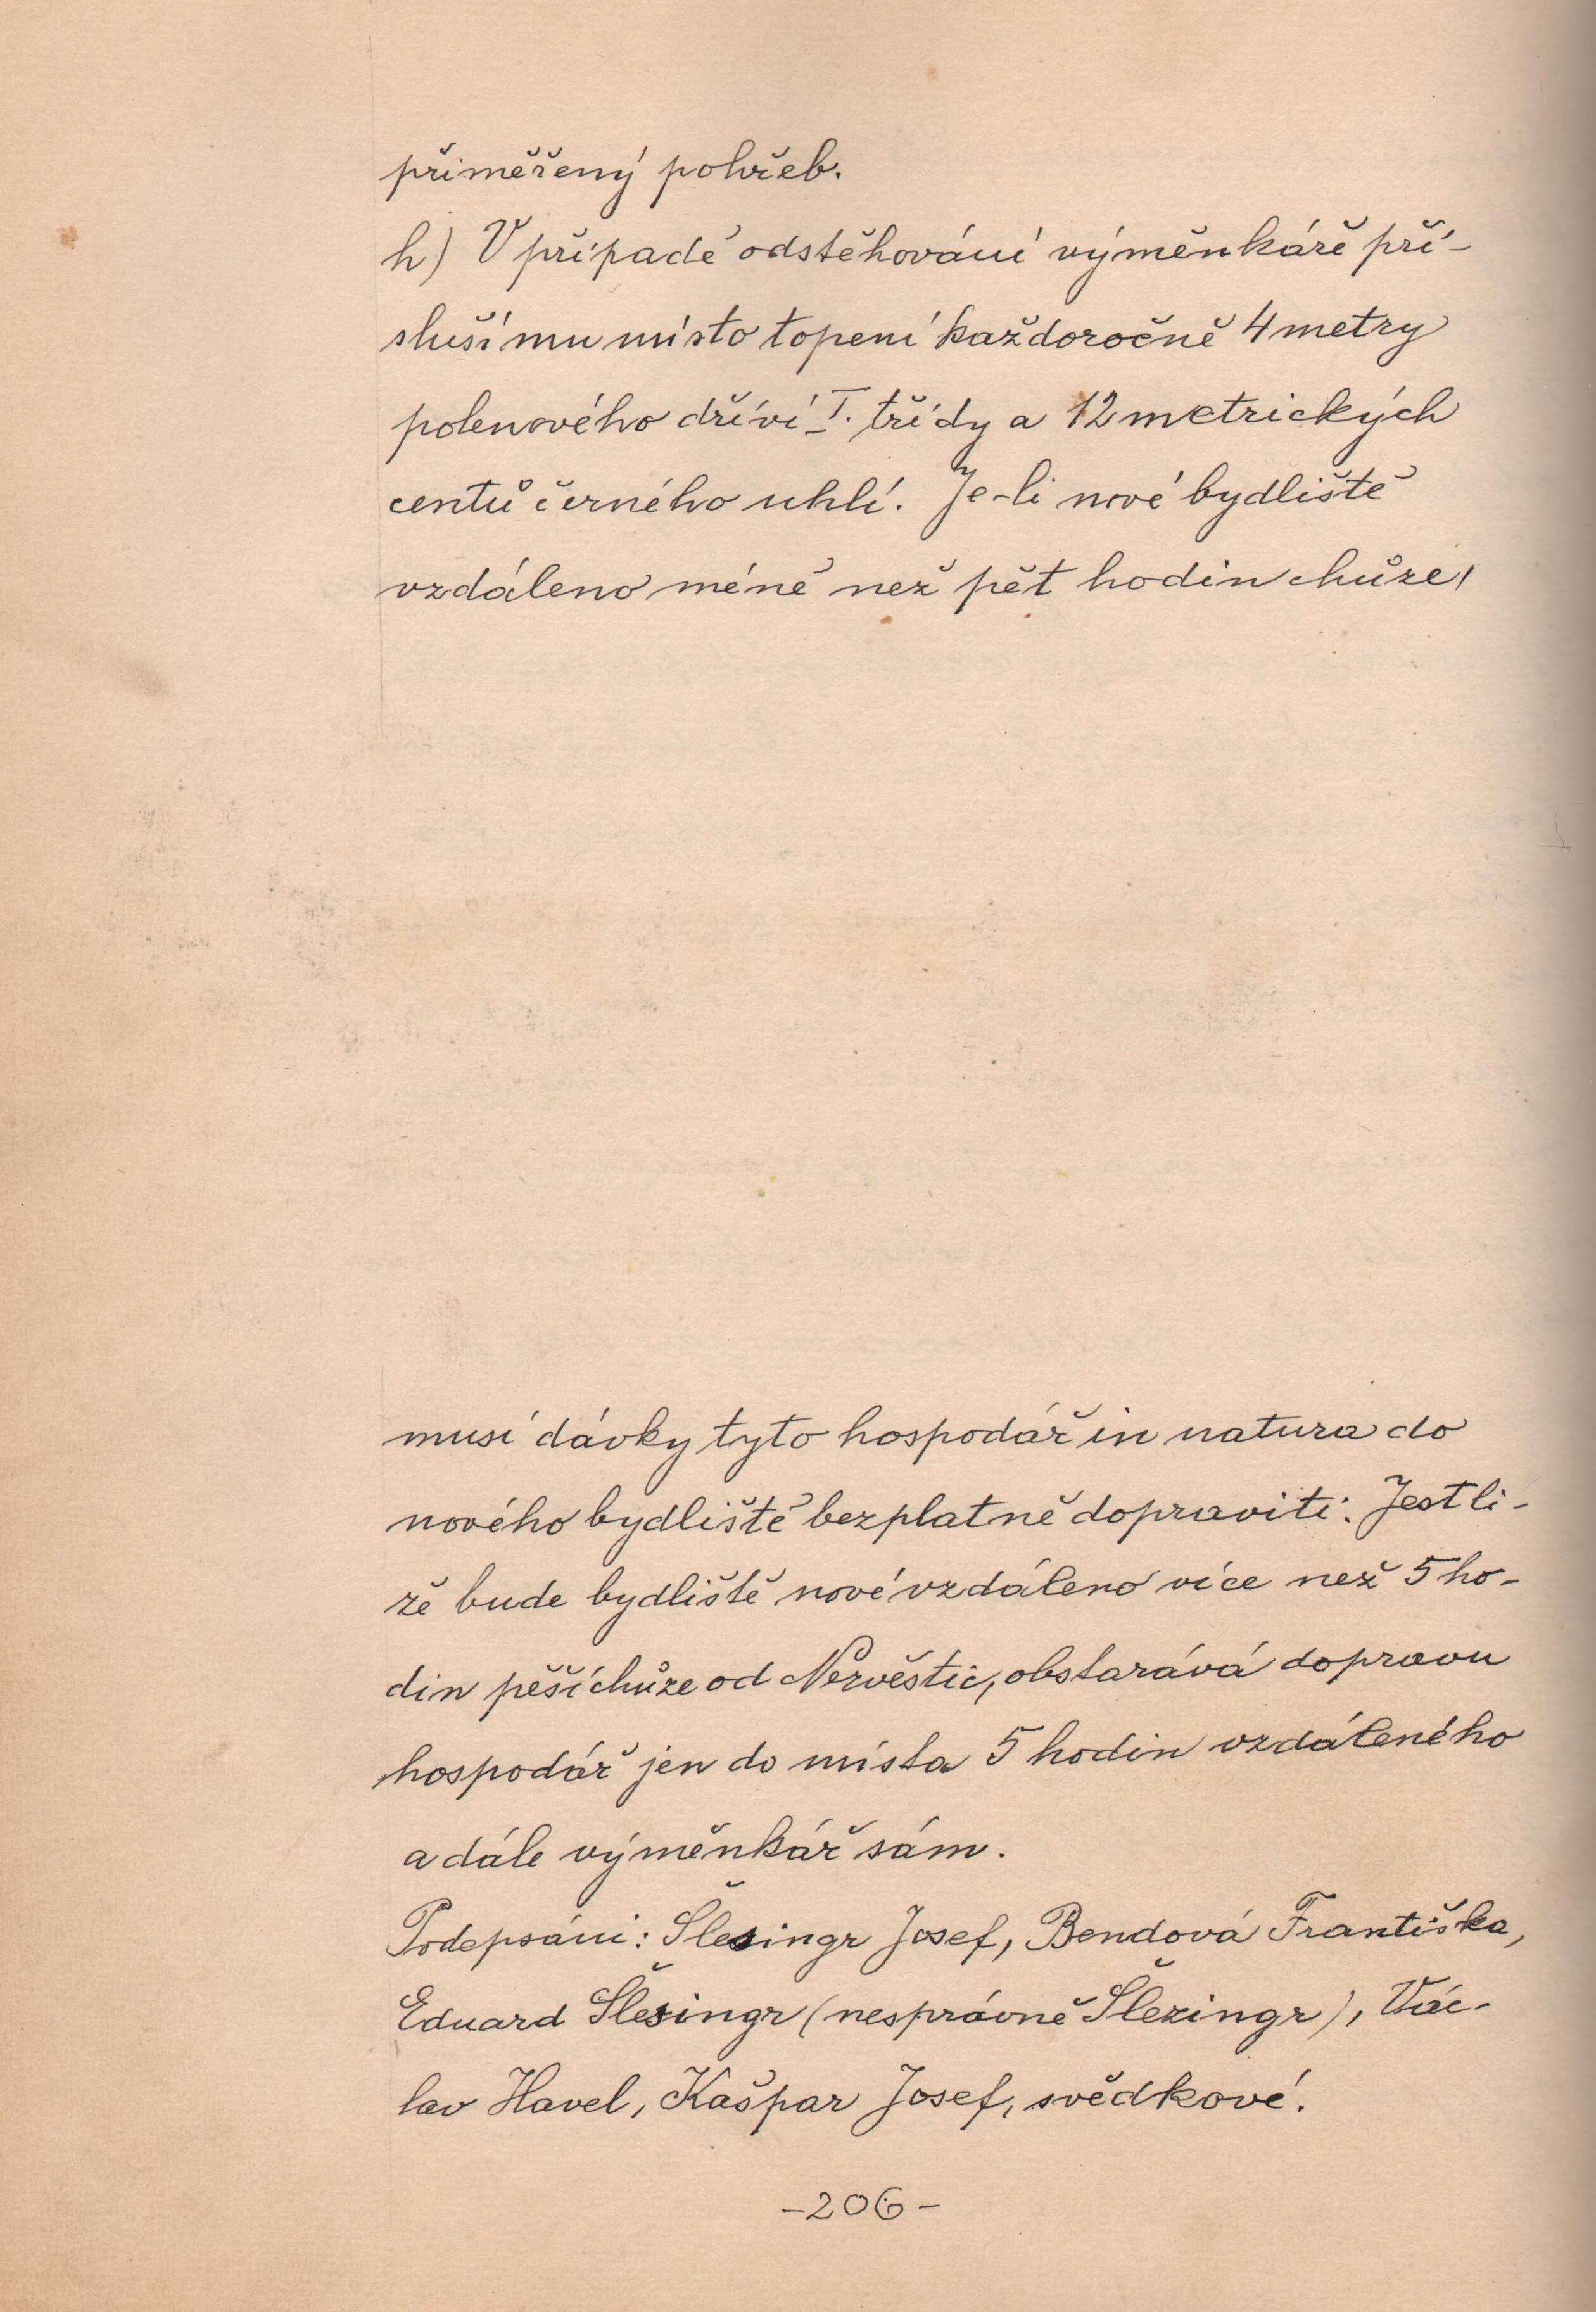 přiměřený pohřeb.
h) V případě odstěhování výměnkáře pří-
sluší mu místo topení každoročně 4 metry
polenového dříví I. třídy a 12 metrických
centů černého uhlí. Je-li nové bydliště
vzdáleno méně než pět hodin chůze,
musí dávky tyto hospodář in natura do
nového bydliště bezplatně dopraviti. Jestli-
že bude bydliště nové vzdáleno více než 5 ho-
din pěší chůze od Nezvěstic, obstarává dopravu
hospodář jen do místa 5 hodin vzdáleného
a dále výměnkář sám.
Podepsáni: Šlesingr Josef, Bendová Františka,
Eduard Šlesingr (nesprávně Šlezingr), Vác-
lav Havel, Kašpar Josef, svědkové.
-206-